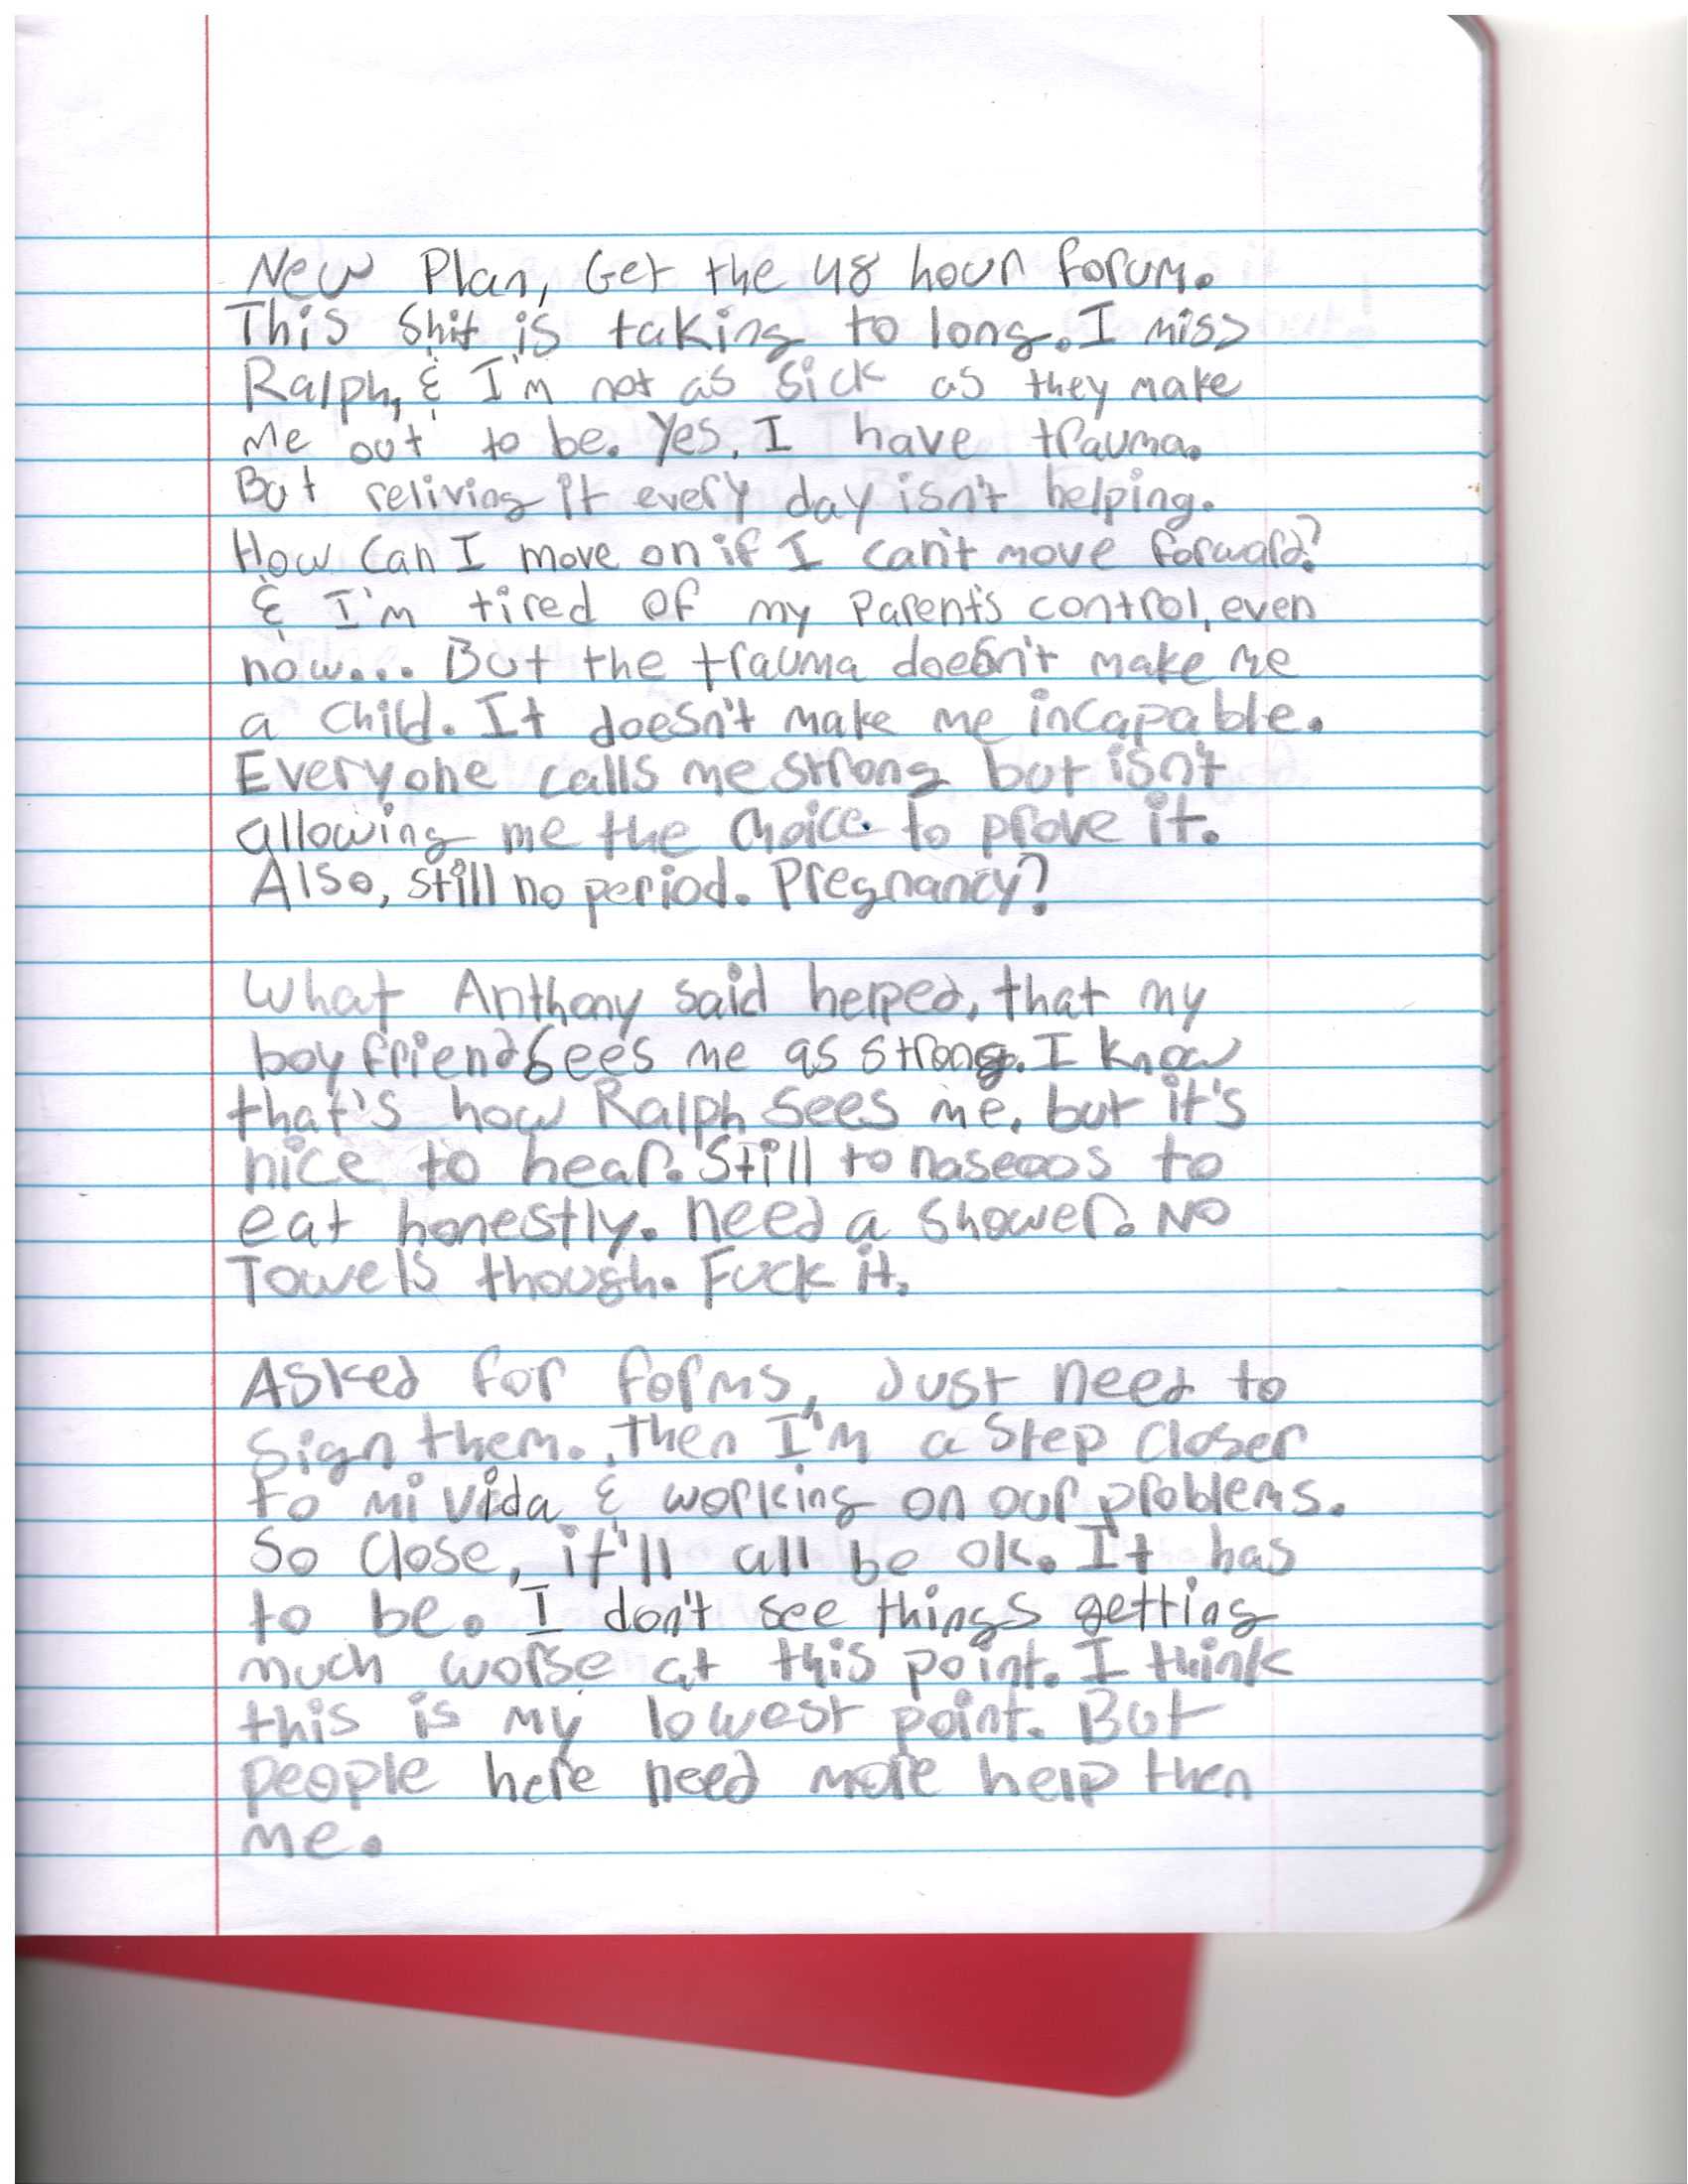 New Plan, Get the 48 hour forum.
This Shit is taking to long. I miss
Ralph, & I'm not as sick as they make
me out to be. Yes, I have trauma.
But reliving it every day isn't helping.
How can I move on if I can't move forward?
& I'm tired of my Parent's control, even
now... But the trauma doesn't make me
a child. It doesn't make me incapable.
Everyone calls me strong but isn't
allowing me the choice to prove it.
Also, still no period. Pregnancy?
What Anthony said helped, that my
boyfriend sees me as strong. I know
that's how Ralph sees me, but it's
nice to hear. Still to naseoos to
eat honestly. Need a shower. No
Towels though. Fuck it.
Asked for forms, Just need to
sign them. Then I'm a step closer
to mi vida & working on our problems.
So close, it'll all be ok. It has
to be. I don't see things getting
much worse at this point. I think
this is my lowest point. But
people here need more help then
me.